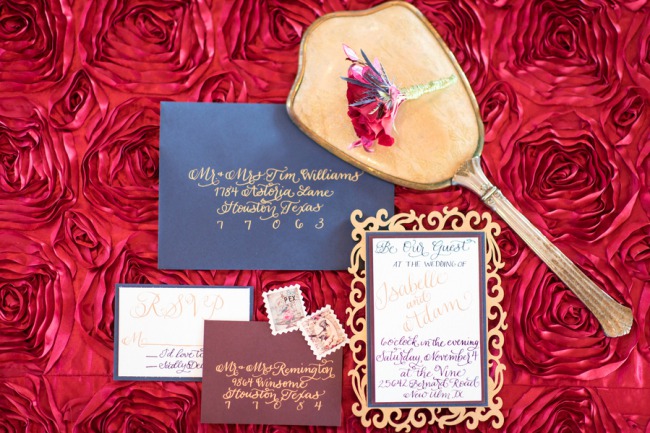 Mr + Mrs Tim Williams
1784 Astoria Lane
Houston Texas
7 7 0 6 3
Be Our Guest
AT THE WEDDING OF
Isabelle
and
Adam
6 o'clock in the evening
Saturday, November 4
at the Vine
25642 Bernard Road
New Ulm TX
RSVP
M
I'd love to
Sadly De
PEX
Mr + Mrs Remington
9864 Winsome
Houston Texas
7 7 0 8 4